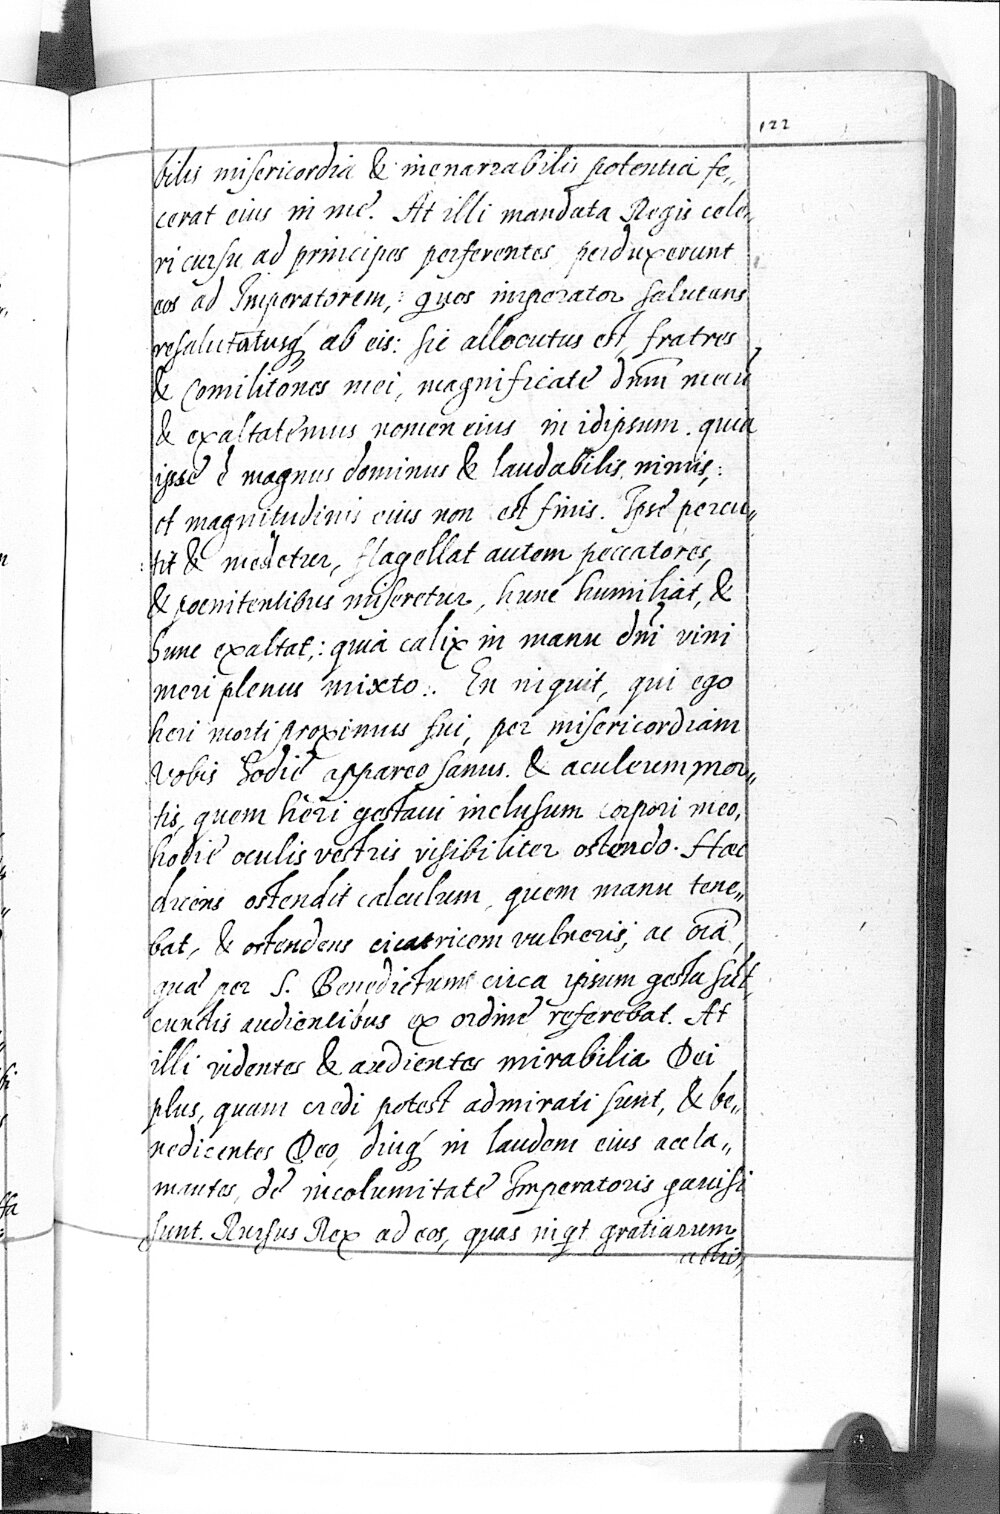 122
bilis misericordia & inenarrabilis potentia fe„
cerat eius in me. At illi mandata Regis cele„
ri cursu ad principes perferentes perduxerunt
eos ad Imperatorem,: quos imperator salutans
resalutatusq́ ab eis: sic allocutus est, fratres
& Comilitones mei, magnificate dn̄m meū
& exaltatemus nomen eius in idipsum. quia
ipse ē magnus dominus & laudabilis nimis,:
et magnitudinis eius non est finis. Ipse percu„
tit & medetur, flagellat autem peccatores,
& poenitentibus miseretur, hunc humiliat, &
hunc exaltat,: quia calix in manu dn̄i vini
meri plenus mixto.. En inquit, qui ego
heri morti proximus fui, per misericordiam
vobis hodie appareo sanus. & aculeum mor„
tis, quem heri gestavi inclusum corpori meo,
hodie oculis vestris visibiliter ostendo. Haec
dicens ostendit calculum, quem manu tene„
bat, & ostendens cicatricem vulneris, ac oīa,
quae per S. Benedictum circa ipsum gesta sūt,
cunctis audientibus ex ordine referebat. At
illi videntes & audientes mirabilia Dei
plus, quam credi potest admirati sunt, & be„
nedicentes Deo, diuq́ in laudem eius accla„
mantes, de incolumitate Imperatoris gauisi
sunt. Rursus Rex ad eos, quas inqt gratiarum
actio„